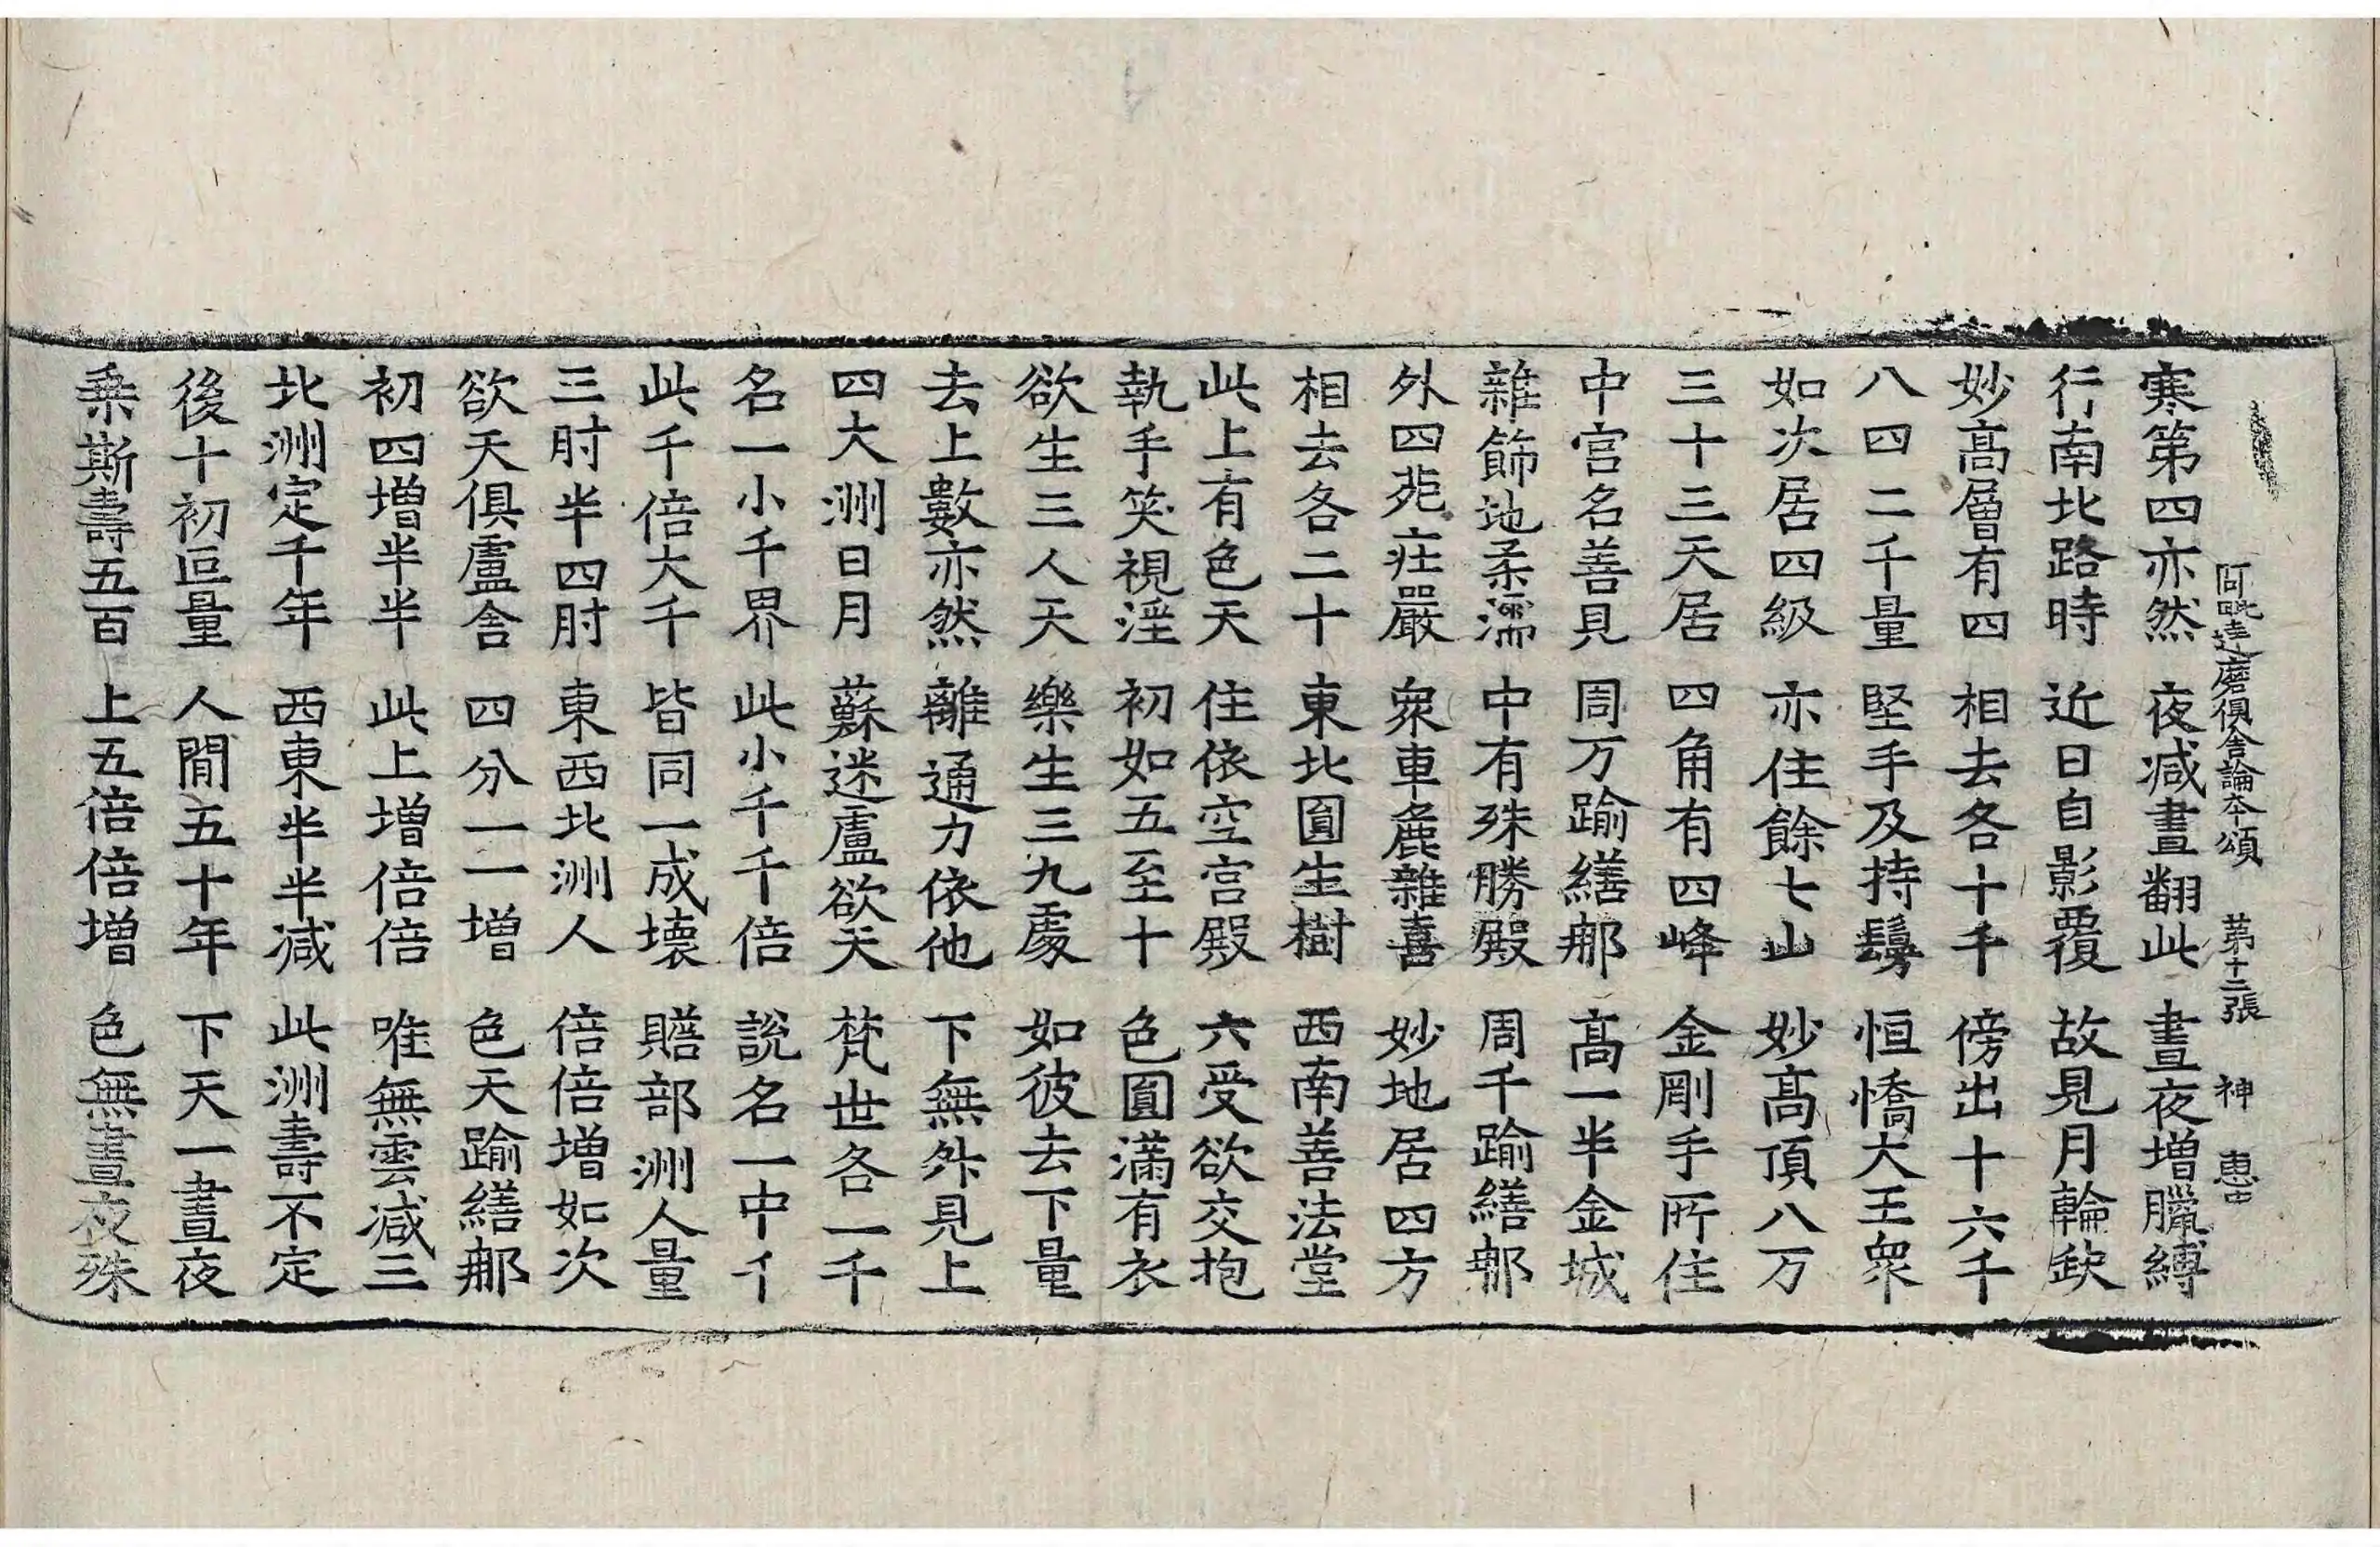 阿毗達磨俱舍論本頌 第十二張 神
寒第四亦然 夜減晝翻此 晝夜增臘縛
行南北路時 近日自影覆 故見月輪缺
妙高層有四 相去各十千 傍出十六千
八四二千量 堅手及持鬘 恒憍大王衆
如次居四級 亦住餘七山 妙高頂八万
三十三天居 四角有四峰 金剛手所住
中宮名善見 周万踰繕那 高一半金城
雜飾地柔濡 中有殊勝殿 周千踰繕那
外四苑莊嚴 衆車麁雜喜 妙地居四方
相去各二十 東北圓生樹 西南善法堂
此上有色天 住依空宮殿 六受欲交抱
執手笑視淫 初如五至十 色圓滿有衣
欲生三人天 樂生三九處 如彼去下量
去上數亦然 離通力依他 下無外見上
四大洲日月 蘇迷盧欲天 梵世各一千
名一小千界 此小千千倍 說名一中千
此千倍大千 皆同一成壞 贍部洲人量
三肘半四肘 東西北洲人 倍倍增如次
欲天俱盧舍 四分一一增 色天踰繕那
初四增半半 此上增倍倍 唯無雲減三
北洲定千年 西東半半減 此洲壽不定
後十初叵量 人間五十年 下天一晝夜
乘斯壽五百 上五倍倍增 色無晝夜殊